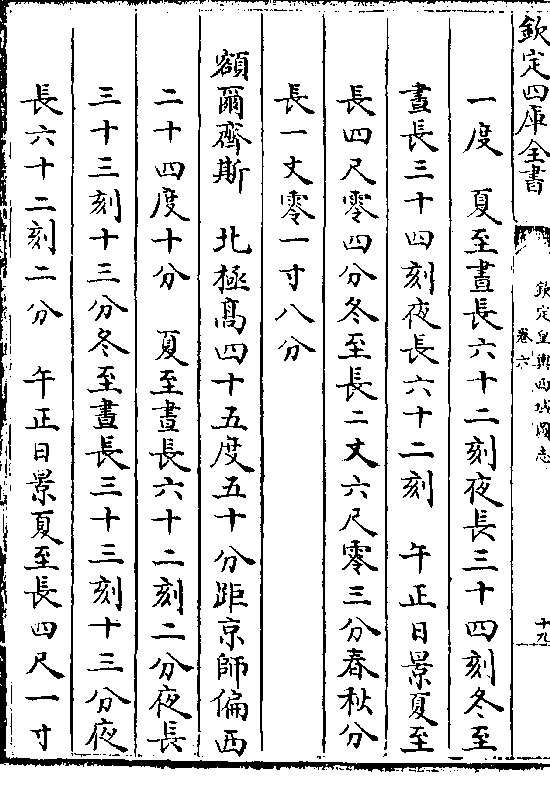 欽定四庫全書
欽定皇輿西域圖志
卷六
十九
一度　夏至晝長六十二刻夜長三十四刻冬至
晝長三十四刻夜長六十二刻　午正日景夏至
長四尺零四分冬至長二丈六尺零三分春秋分
長一丈零一寸八分
額爾齊斯　北極髙四十五度五十分距京師偏西
二十四度十分　夏至晝長六十二刻二分夜長
三十三刻十三分冬至晝長三十三刻十三分夜
長六十二刻二分　午正日景夏至長四尺一寸